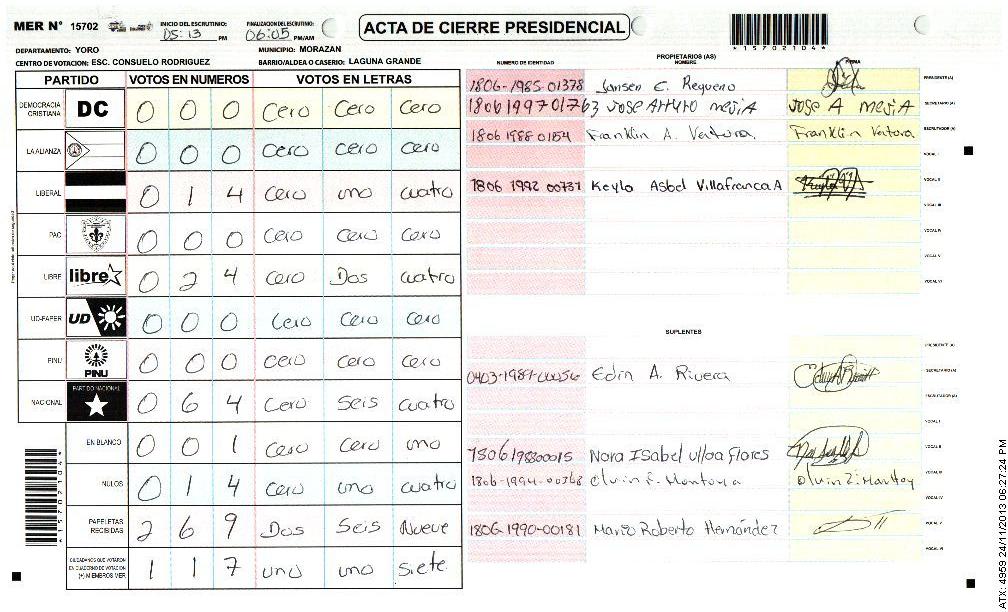 MER N° 15702
INICIO DEL ESCRUTINIO: 05:13 PM
FINALIZACION DEL ESCRUTINIO: 06:05 PM/AM
ACTA DE CIERRE PRESIDENCIAL
*15702104*
DEPARTAMENTO: YORO
MUNICIPIO: MORAZAN
CENTRO DE VOTACION: ESC. CONSUELO RODRIGUEZ
BARRIO/ALDEA O CASERIO: LAGUNA GRANDE
PARTIDO VOTOS EN NUMEROS VOTOS EN LETRAS
DEMOCRACIA CRISTIANA DC 0 0 0 Cero Cero Cero
LA ALIANZA 0 0 0 Cero cero cero
LIBERAL 0 1 4 Cero uno cuatro
PAC 0 0 0 Cero Cero Cero
LIBRE libre 0 2 4 Cero Dos cuatro
UD-FAPER UD 0 0 0 Cero Cero Cero
PINU PINU 0 0 0 Cero Cero Cero
NACIONAL PARTIDO NACIONAL 0 6 4 Cero Seis cuatro
EN BLANCO 0 0 1 Cero Cero uno
NULOS 0 1 4 Cero uno cuatro
PAPELETAS RECIBIDAS 2 6 9 Dos Seis Nueve
CIUDADANOS QUE VOTARON EN CUADERNO DE VOTACION (+) MIEMBROS MER 1 1 7 uno uno Siete
*15702104*
PROPIETARIOS (AS)
NUMERO DE IDENTIDAD NOMBRE FIRMA
1806-1985-01378 Jansen E. Requeno PRESIDENTE(A)
1806199701763 JOSE Arturo mejiA JOSE A mejiA SECRETARIO (A)
1806 1988 0154 Franklin A. Ventura. Franklin Ventura ESCRUTADOR (A)
VOCAL I
1806 1992 00737 Keylo Asbel Villafranca A VOCAL II
VOCAL III
VOCAL IV
VOCAL V
VOCAL VI
SUPLENTES
PRESIDENTE (A)
0403-1987-00056 Edin A. Rivera SECRETARIO (A)
ESCRUTADOR (A)
VOCAL I
1806198300015 Nora ISabel ulloa flores VOCAL II
1806-1994-00768 Elvin E. Montoya VOCAL III
VOCAL IV
1806-1990-00181 Mario Roberto Hernández VOCAL V
VOCAL VI
ATX: 4959 24/11/2013 06:27:24 PM